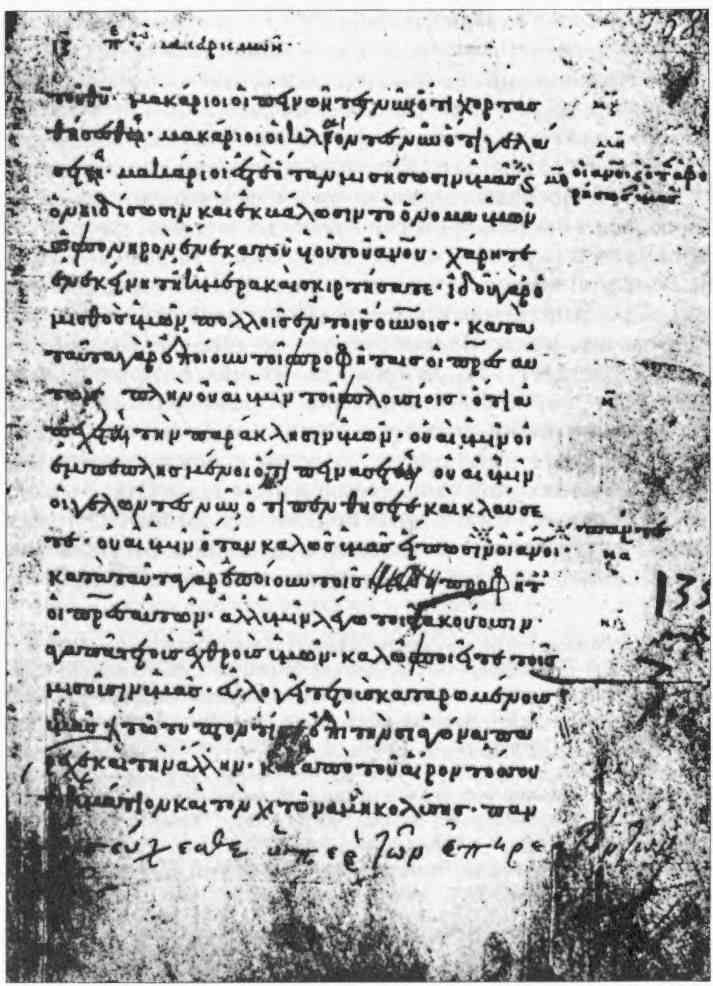 μακαρισμῶν
τοῦ θῦ· μακάριοι οἱ πεινῶντες νῦν ὅτι χορτασ
θήσεσθε· μακάριοι οἱ κλαίοντες νῦν ὅτι γελά
σετε· μακάριοι ἐστε ὅταν μισήσωσιν ὑμᾶς
οἱ ἄνοι κ ὅταν ἀφο
ρίσωσιν ὑμᾶς
ὀνειδίσωσιν καὶ ἐκβάλωσιν τὸ ὄνομα ὑμῶν
ὡς πονηρὸν ἕνεκα τοῦ υἱοῦ τοῦ ἀνου· χάρητε
ἐν ἐκείνη τῆ ἡμέρα καὶ σκιρτήσατε· ἰδοὺ γὰρ ὁ
μισθὸς ὑμῶν πολλοῖς ἐν τοῖς οὐνοις· κατὰ
ταῦτα γὰρ ἐποίουν τοῖς προφήταις οἱ πρες αὐ
τῶν· πλὴν οὐαὶ ὑμῖν τοῖς πλουσίοις· ὅτι ἀ
πέχετε τὴν παράκλησιν ὑμῶν· οὐαὶ ὑμῖν οἱ
ἐμπεπλησμένοι ὅτι πεινάσετε· οὐαὶ ὑμῖν
οἱ γελῶντες νῦν ὅτι πενθήσετε καὶ κλαύσε
τε· οὐαὶ ὑμῖν ὅταν καλῶς ὑμᾶς εἴπωσιν οἱ ἄνοι·
κατὰ ταῦτα γὰρ ἐποίουν τοῖς προφητ
οἱ πρες αὐτῶν· ἀλλ ὑμῖν λέγω τοῖς ἀκούουσιν·
ἀγαπᾶτε τοὺς ἐχθροὺς ὑμῶν· καλῶς ποιεῖτε τοῖς
μισοῦσιν ὑμᾶς· εὐλογεῖτε τοὺς καταρωμένους
ὑμᾶς· τῶ τύπτοντι σε ἐπὶ τὴν σιαγόνα πά
ρεχε καὶ τὴν ἄλλην· καὶ ἀπὸ τοῦ αἴροντός σου
τὸ ἱμάτιον καὶ τὸν χιτῶνα μὴ κολύσης· παν
εὔχεσθε ὑπὲρ τῶν